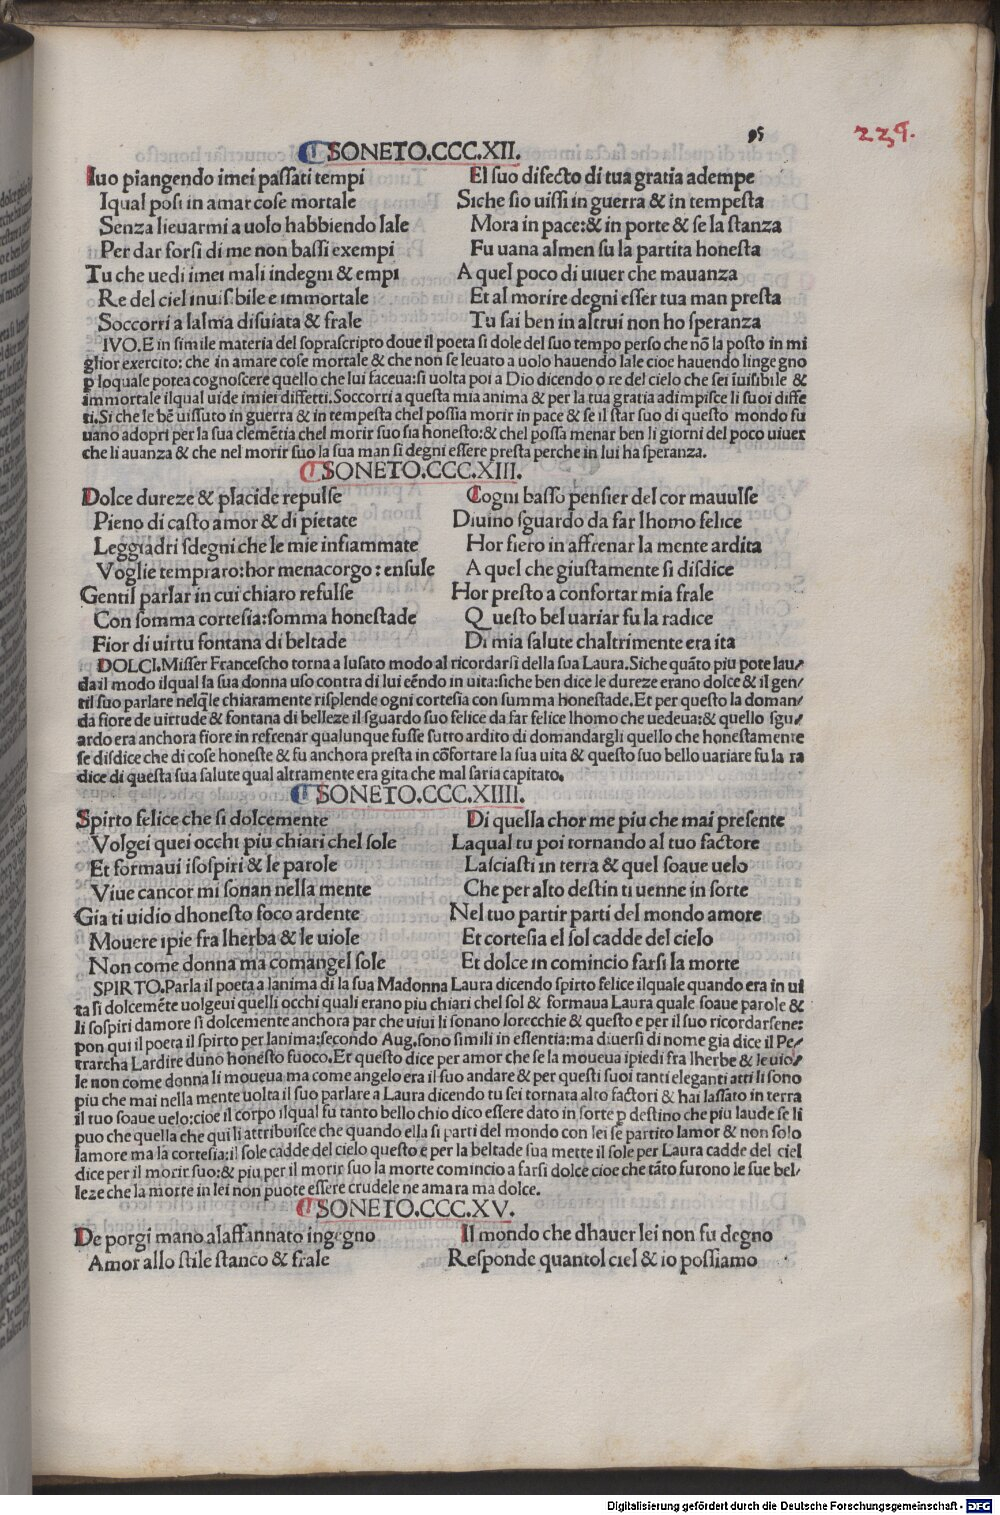 95
225.
SONETO.CCC.XII.
Iuo piangendo imei passati tempi
Iqual posi in amar cose mortale
Senza lieuarmi a uolo habbiendo lale
Per dar forsi di me non bassi exempi
Tu che uedi imei mali indegni & empi
Re del ciel inuisibile e immortale
Soccorri a lalma disuiata & frale
El suo disecto di tua gratia adempe
Siche sio uissi in guerra & in tempesta
Mora in pace:& in porte & se la stanza
Fu uana almen su la partita honesta
A quel poco di uiuer che mauanza
Et al morire degni esser tua man presta
Tu sai ben in altrui non ho speranza
IVO.E in simile materia del soprascripto doue il poeta si dole del suo tempo perso che nõ la posto in mi
glior exercito: che in amare cose mortale & che non se leuato a uolo hauendo lale cioe hauendo linge gno
p loquale potea cognoscere quello che lui faceua:si uolta poi a Dio dicendo o re del cielo che sei ĩuisibile &
immortale ilqual uide imiei diffetti.Soccorri a questa mia anima & per la tua gratia adimpisce li suoi diffe
ti.Si che le bẽ uissuto in guerra & in tempesta chel possia morir in pace & se il star suo di questo mondo fu
uano adopri per la sua clemẽtia chel morir suo sia honesto:& chel possa menar ben li giorni del poco uiuer
che li auanza & che nel morir suo la sua man si degni essere presta perche in lui ha speranza.
SONETO.CCC.XIII.
Dolce dureze & placide repulse
Pieno di casto amor & di pietate
Leggiadri sdegni che le mie infiammate
Voglie tempraro:hor menacorgo:ensule
Gentil parlar in cui chiaro refulse
Con somma cortesia:somma honestade
Fior di uirtu fontana di beltade
Cogni basso pensier del cor mauulse
Diuino sguardo da far lhomo felice
Hor fiero in affrenar la mente ardita
A quel che giustamente si disdice
Hor presto a confortar mia frale
Questo bel uariar fu la radice
Di mia salute chaltrimente era ita
DOLCI.Misser Francescho torna a lusato modo al ricordarsi della sua Laura.Siche quãto piu pote lau/
da il modo ilqual la sua donna uso contra di lui eẽndo in uita:siche ben dice le dureze erano dolce & il gen/
til suo parlare nelq̃le chiaramente risplende ogni cortesia con summa honestade.Et per questo la doman/
da fiore de uirtude & fontana di belleze il sguardo suo felice da far felice lhomo che uedeua:& quello sgu/
ardo era anchora fiore in refrenar qualunque fusse sutto ardito di domandargli quello che honestamente
se disdice che di cose honeste & fu anchora presta in cõfortare la sua uita & questo suo bello uariare fu la ra
dice di questa sua salute qual altramente era gita che mal saria capitato.
SONETO.CCC.XIIII.
Spirto felice che si dolcemente
Volgei quei occhi piu chiari chel sole
Et formaui isospiri & le parole
Viue cancor mi sonan nella mente
Gia ti uidio dhonesto foco ardente
Mouere ipie fra lherba & le uiole
Non come donna ma comangel sole
Di quella chor me piu che mai presente
Laqual tu poi tornando al tuo factore
Lasciasti in terra & quel soaue uelo
Che per alto destin ti uenne in sorte
Nel tuo partir parti del mondo amore
Et cortesia el sol cadde del cielo
Et dolce in comincio farsi la morte
SPIRTO.Parla il poeta a lanima di la sua Madonna Laura dicendo spirto felice ilquale quando era in ui
ta si dolcemẽte uolgeui quelli occhi quali erano piu chiari chel sol & formaua Laura quale soaue parole &
li sospiri damore si dolcemente anchora par che uiui li sonano lorecchie & questo e per il suo ricordarsene:
pon qui il poeta il spirto per lanima:secondo Aug.sono simili in essentia:ma diuersi di nome gia dice il Pe/
trarcha Lardire duno honesto fuoco.Et questo dice per amor che se la moueua ipiedi fra lherbe & le uio/
le non come donna li moueua ma come angelo era il suo andare & per questi suoi tanti eleganti atti li sono
piu che mai nella mente uolta il suo parlare a Laura dicendo tu sei tornata alto factori & hai lassato in terra
il tuo soaue uelo:cioe il corpo ilqual fu tanto bello chio dico essere dato in sorte p destino che piu laude se li
puo che quella che qui li attribuisce che quando ella si parti del mondo con lei se partito lamor & non solo
lamore ma la cortesia:il sole cadde del cielo questo e per la beltade sua mette il sole per Laura cadde del ciel
dice per il morir suo:& piu per il morir suo la morte comincio a farsi dolce cioe che tãto furono le sue bel/
leze che la morte in lei non puote essere crudele ne amara ma dolce.
SONETO.CCC.XV.
De porgi mano alaffannato ingegno
Amor allo stile stanco & frale
Il mondo che dhauer lei non fu degno
Responde quantol ciel & io possiamo
Digitalisierung gefördert durch die Deutsche Forschungsgemeinschaft - DFG